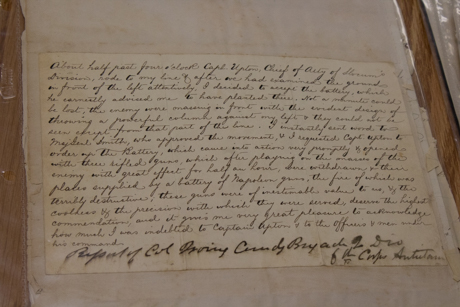 About half past four o'clock Capt. Upton, Chief of Arty of Slocum's
Division, rode to my line & after we had examined the ground
in front of the left attentively, I decided to accept the battery, which
he earnestly advised me to have planted there. Not a minute could
be lost, the enemy were massing in front with the evident design of
throwing a powerful column against my left & they could not be
seen except from that part of the line. I instantly sent word to
Maj Genl Smith, who approved the movement, & I requested Capt Upton to
order up the Battery, which came into action very promptly & opened
with three rifled guns, which after playing on the masses of the
enemy with great effect for half an hour, were withdrawn & their
places supplied by a battery of Napoleon guns, the fire of which was
terribly destructive. these guns were of inestimable value to us, & the
coolness & the precision with which they were served, deserve the highest
commendation, and it gives me very great pleasure to acknowledge
how much I was indebted to Captain Upton & to the officers & men under
his command.
Report of Col Irwin Comdg Brigade 2 Div
6th Corps Antietam